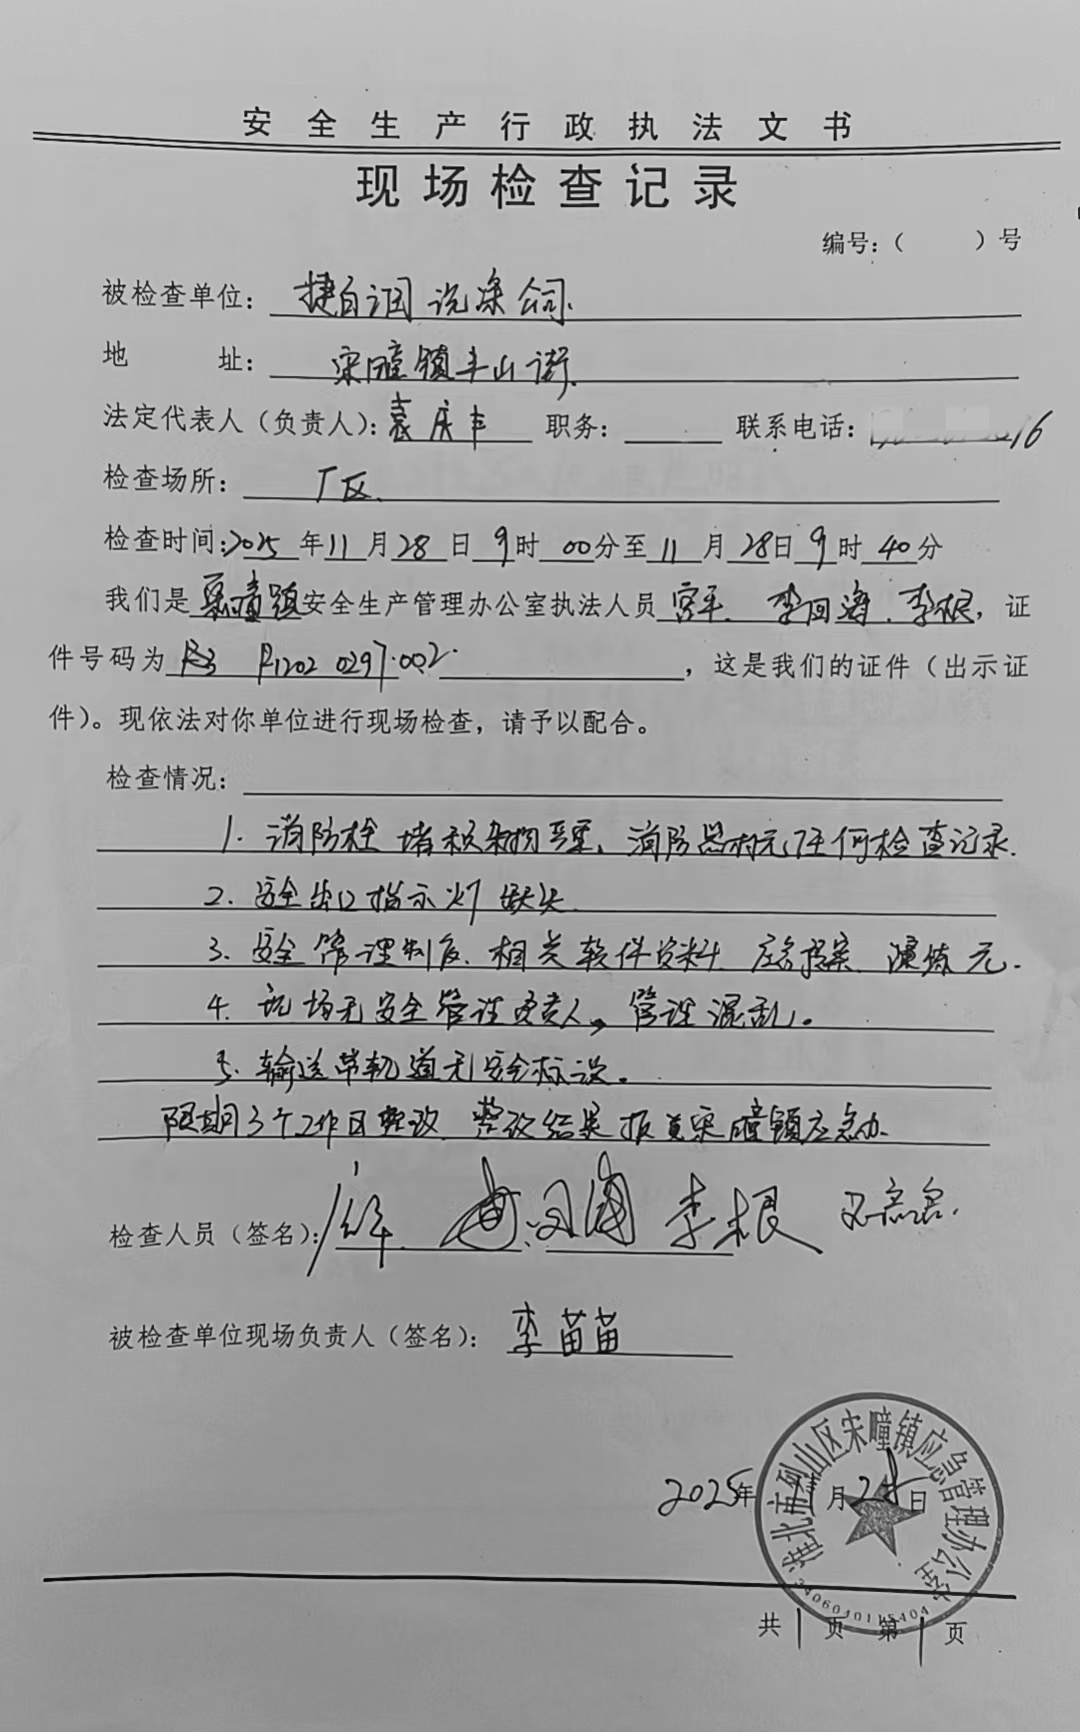 安全生产行政执法文书
现场检查记录
编号：（ ）号
被检查单位： 捷自 洗涤公司.
地 址： 宋疃镇丰山街.
法定代表人（负责人）：袁庆丰 职务： 联系电话： 16
检查场所： 厂区.
检查时间：2025年11月28日9时00分至11月28日9时40分
我们是宋疃镇安全生产管理办公室执法人员宫平、李 、李根，证
件号码为 P1202 0297·002· ，这是我们的证件（出示证
件）。现依法对你单位进行现场检查，请予以配合。
检查情况：
1. 消防栓堵积杂物严重，消防器材无任何检查记录.
2. 安全出口指示灯缺失
3. 安全管理制度、相关软件资料、应急预案、演练无.
4. 现场无安全管理负责人，管理混乱。
5. 输送带轨道无安全标识。
限期3个工作日整改，整改结果报送宋疃镇应急办.
检查人员（签名）： 李根
被检查单位现场负责人（签名）： 李苗苗
2025年11月28日
淮北市烈山区宋疃镇应急管理办公室
3406040115404
共1页 第1页